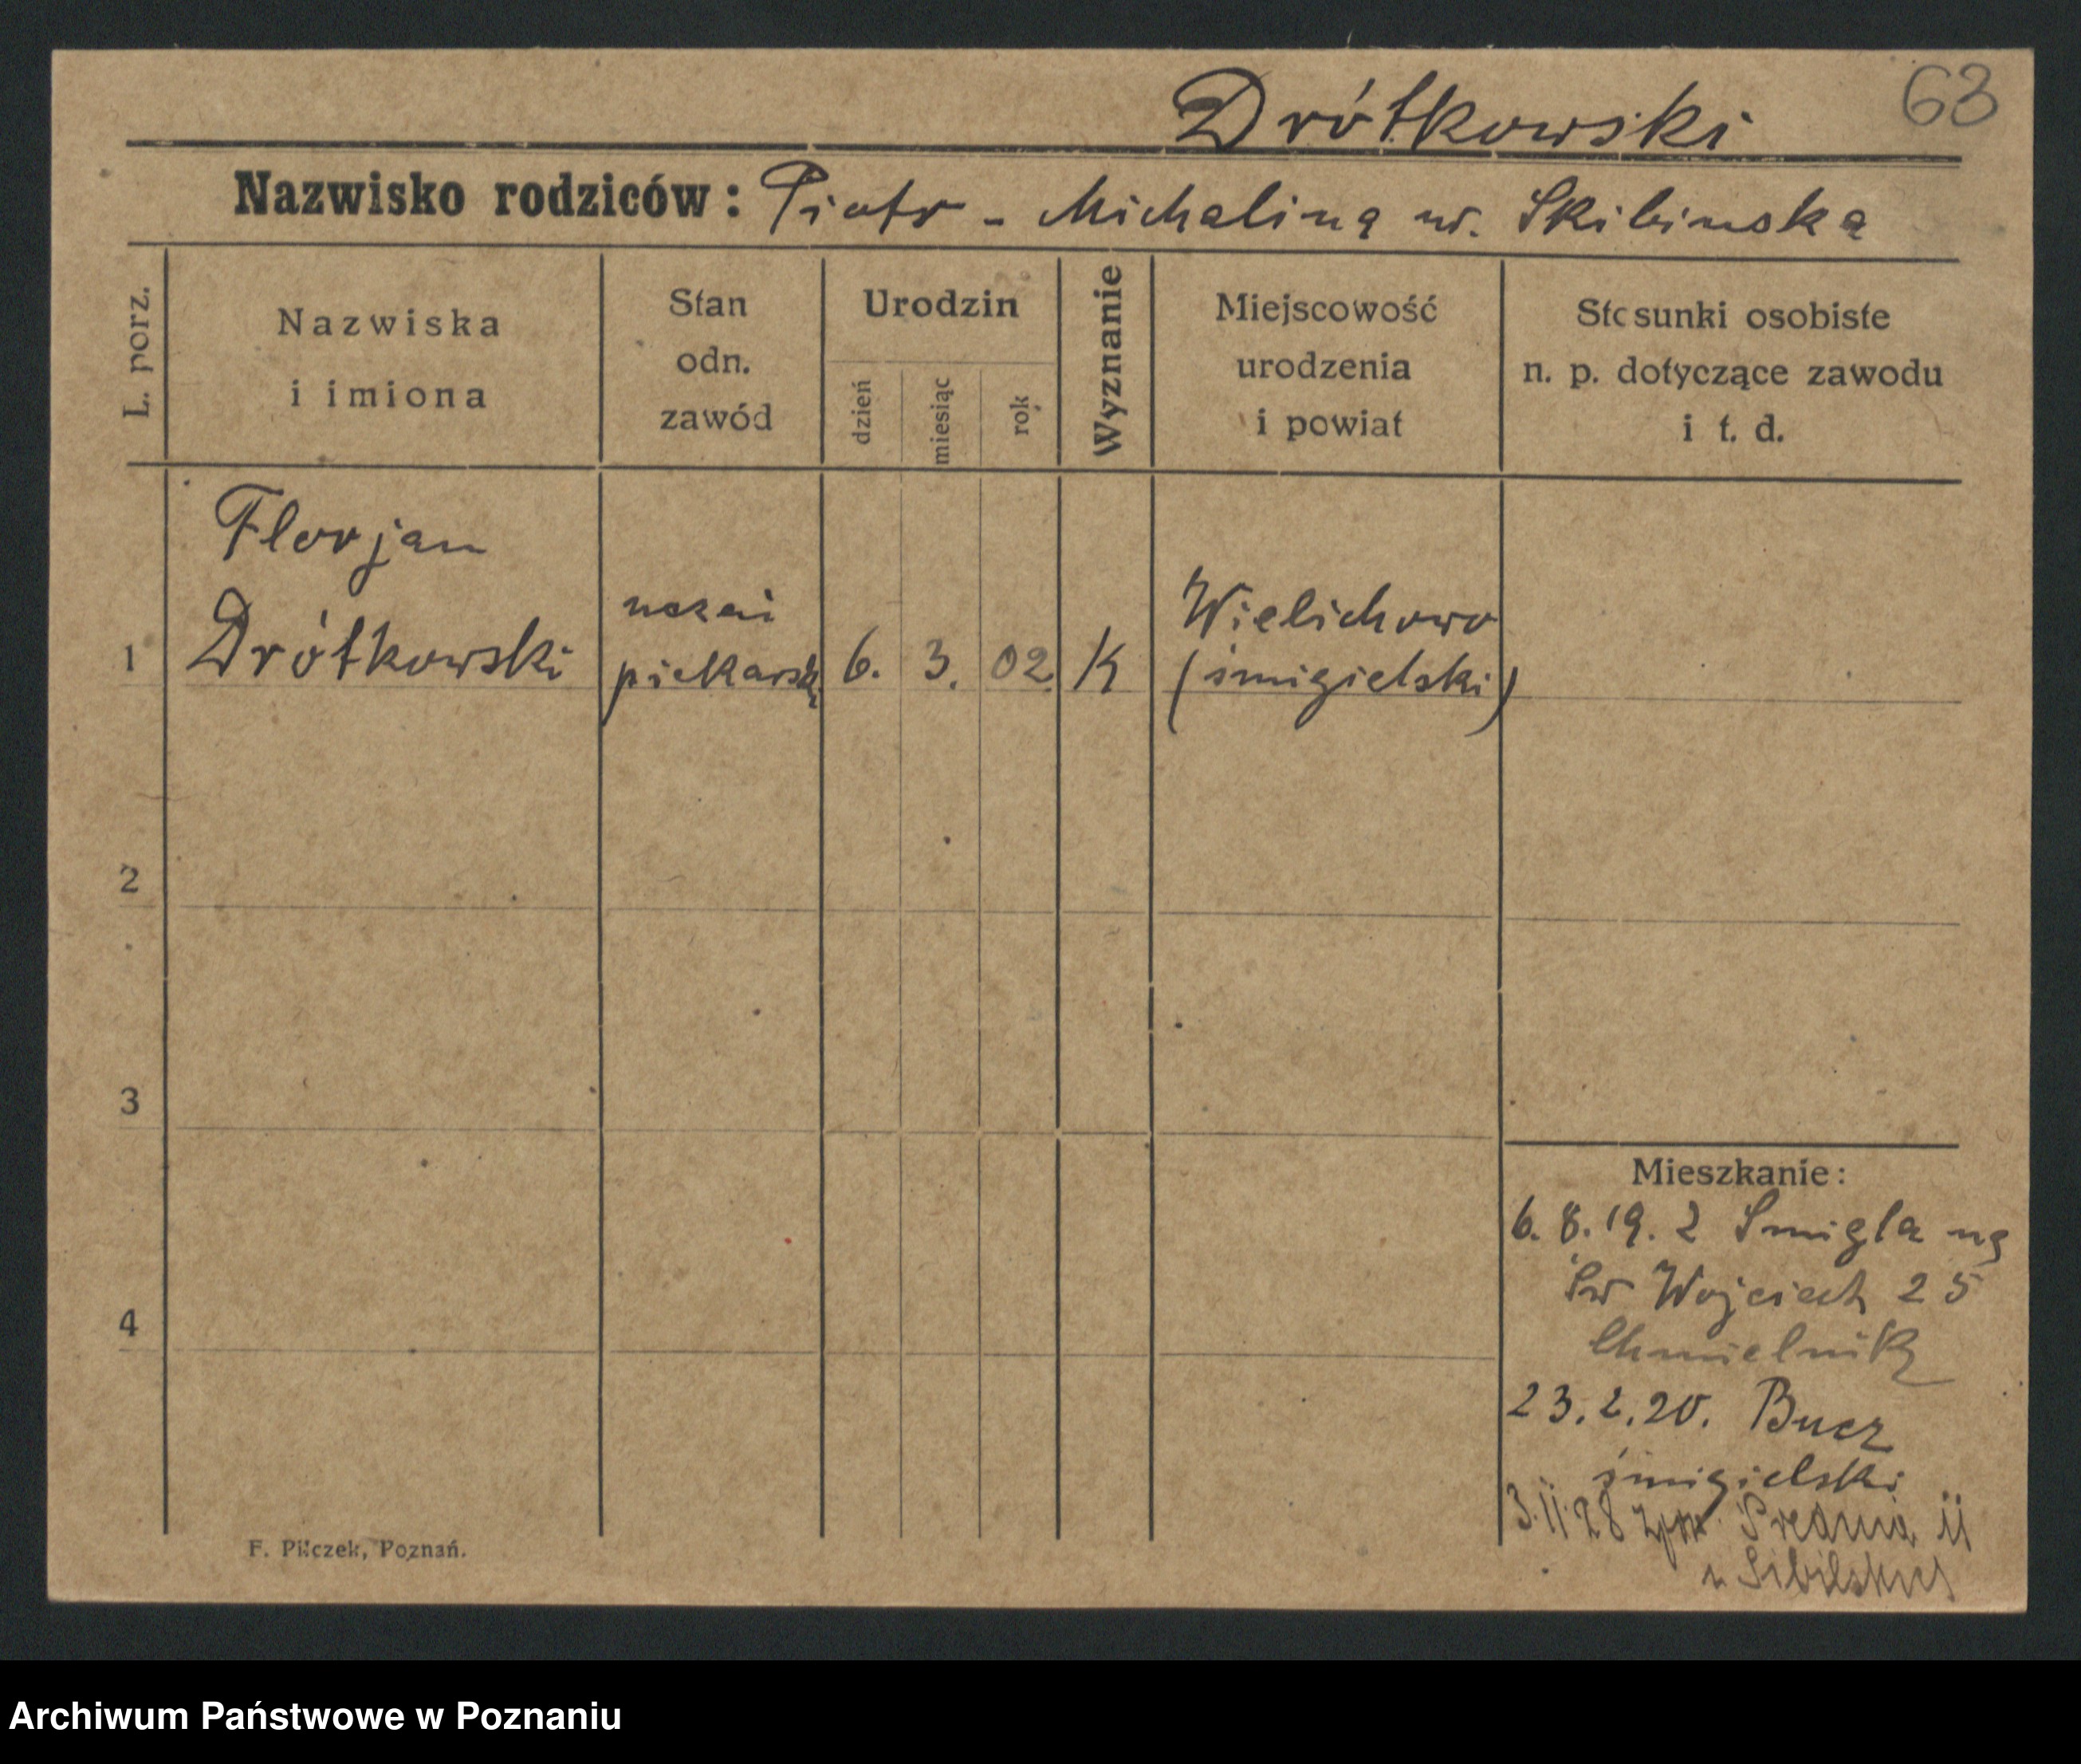 63
Drótkowski
Nazwisko rodziców: Piotr - Michalina ur. Skibinska
L. porz.
Nazwiska
i imiona
Stan
odn.
zawód
Urodzin
dzień
miesiąc
rok
Wyznanie
Miejscowość
urodzenia
i powiat
Stosunki osobiste
n. p. dotyczące zawodu
i t. d.
1
Florjan
Drótkowski
uczeń
piekarski
6. 3. 02
K
Wielichowo
(śmigielski)
2
3
4
Mieszkanie:
6. 8. 19. z Smigla na
Św Wojciech 25
Chmielnik
23. 2. 20. Bucz
śmigielski
3. 11 28
F. Pilczek, Poznań.
Archiwum Państwowe w Poznaniu